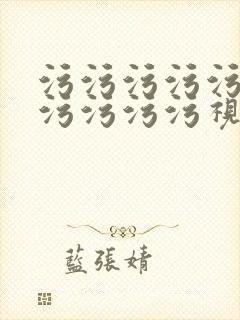 污污污污污
污污污污視
藍張婧